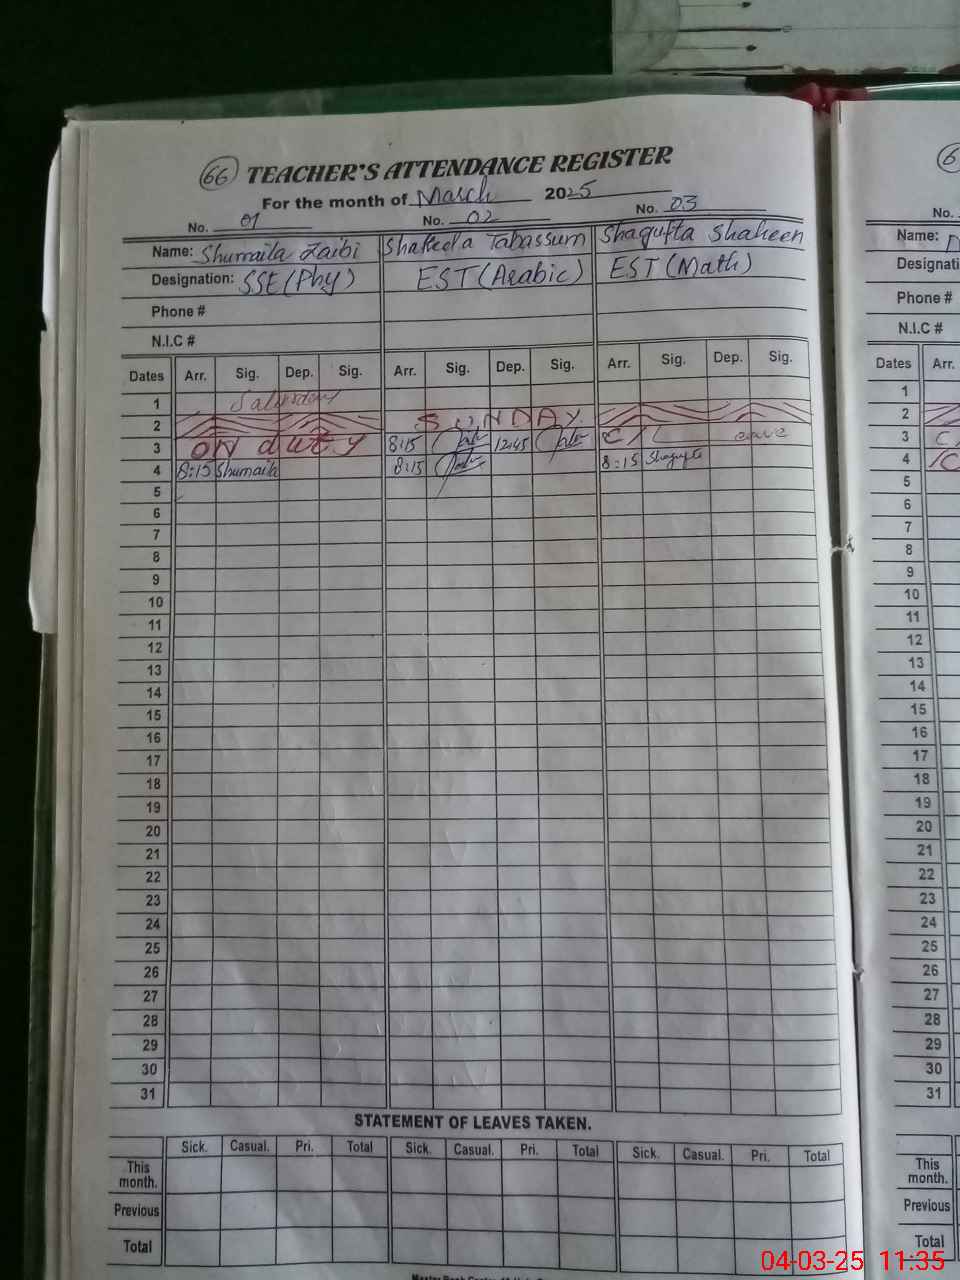 66 TEACHER'S ATTENDANCE REGISTER
For the month of March 2025
No. 01 No. 02 No. 03
Name: Shumaila Zaibi Shakeela Tabassum Shagufta Shaheen
Designation: SSE (Phy) EST (Arabic) EST (Math)
Phone #
N.I.C #
Dates Arr. Sig. Dep. Sig. Arr. Sig. Dep. Sig. Arr. Sig. Dep. Sig.
1 Saturday
2 SUNDAY
3 on duty 8:15 12:45 C/Leave
4 8:15 Shumaila 8:15 8:15 Shagufta
5
6
7
8
9
10
11
12
13
14
15
16
17
18
19
20
21
22
23
24
25
26
27
28
29
30
31
STATEMENT OF LEAVES TAKEN.
Sick. Casual. Pri. Total Sick. Casual. Pri. Total Sick. Casual. Pri. Total
This month.
Previous
Total
6
No.
Name:
Designati
Phone #
N.I.C #
Dates Arr.
1
2
3 C
4 C
5
6
7
8
9
10
11
12
13
14
15
16
17
18
19
20
21
22
23
24
25
26
27
28
29
30
31
This month.
Previous
Total
04-03-25 11:35